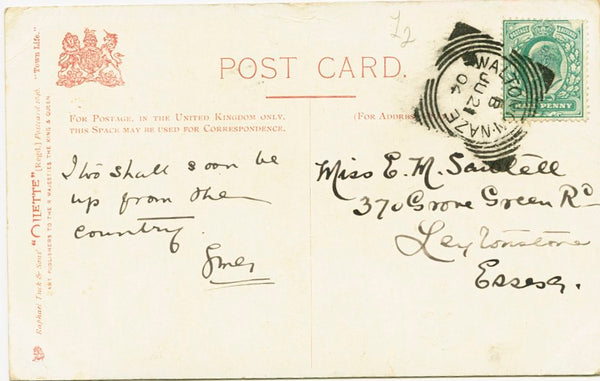 £2
POST CARD.
WALTON-ON-NAZE
B
JU 21
04
HALF PENNY
FOR POSTAGE, IN THE UNITED KINGDOM ONLY,
THIS SPACE MAY BE USED FOR CORRESPONDENCE.
(FOR ADDRESS
I too shall soon be
up from the
country.
Miss E. M. Sawtell
370 Grove Green Rd
Leytonstone
Essex.
Raphael Tuck & Sons' "OILETTE" [Regd.] Postcard "Town Life."
ART PUBLISHERS TO THEIR MAJESTIES THE KING & QUEEN